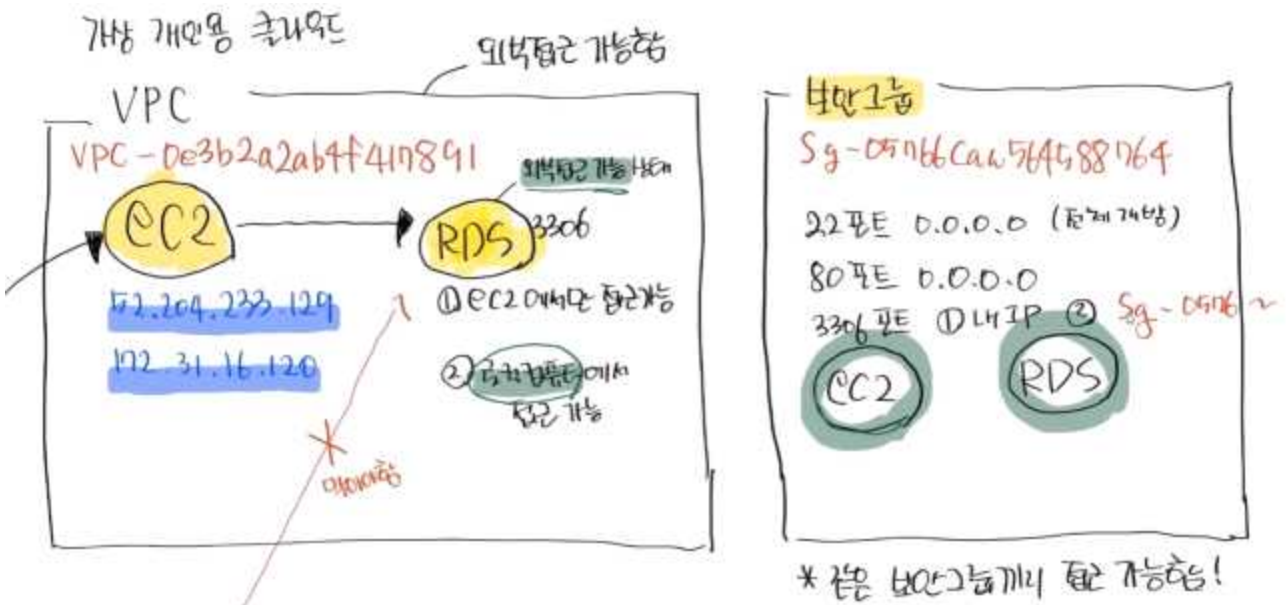 가상 개인용 클라우드
외부접근 가능함
VPC
VPC-0e3b2a2ab4f417891
외부접근 가능 상태
EC2
RDS
3306
52.204.233.129
172.31.16.120
① EC2에서만 접근가능
② 로컬컴퓨터에서
접근 가능
막아야함
보안그룹
Sg-05766caa564588764
22포트 0.0.0.0 (전체개방)
80포트 0.0.0.0
3306포트 ① 내IP ② Sg-0576~
EC2
RDS
* 같은 보안그룹끼리 접근 가능함!